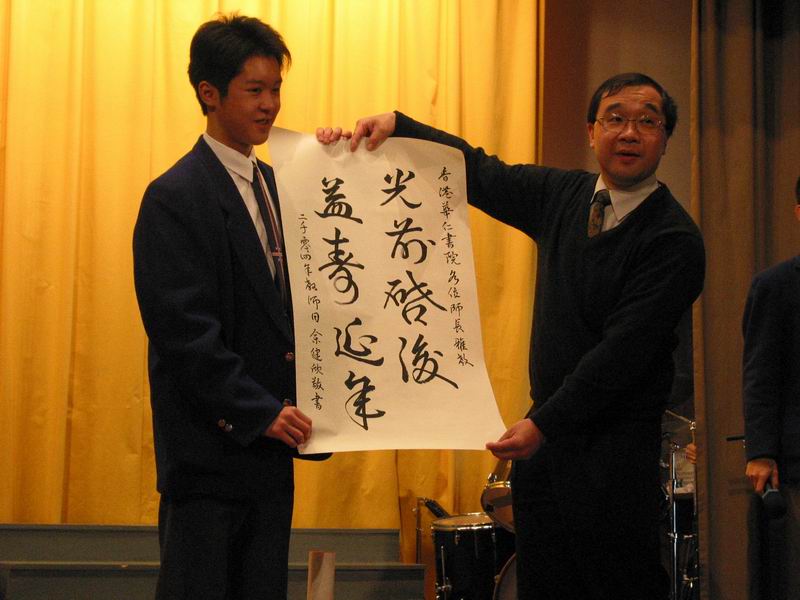 香港華仁書院各位師長雅教
光前啓後
益壽延年
二千零四年敎師日余健欣敬書